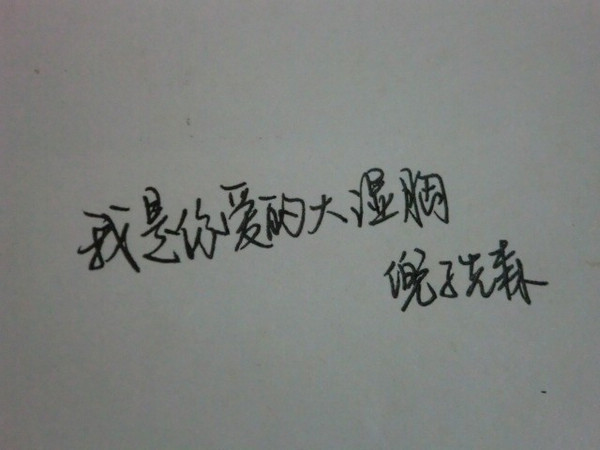 我是你爱的大湿胸
倪子先森